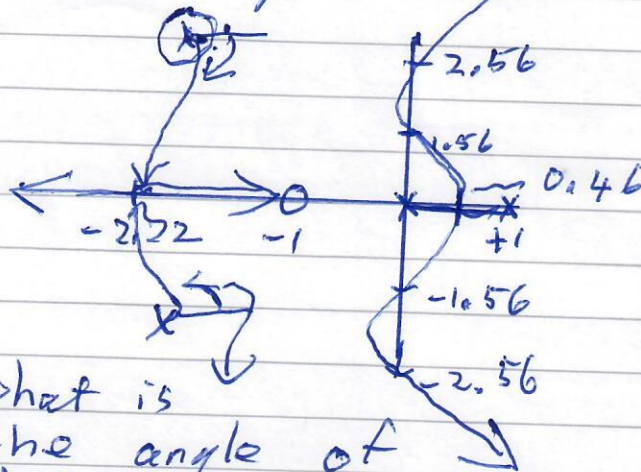 2.56
1.56
0.46
-2.22 -1 +1
-1.56
-2.56
what is
the angle of